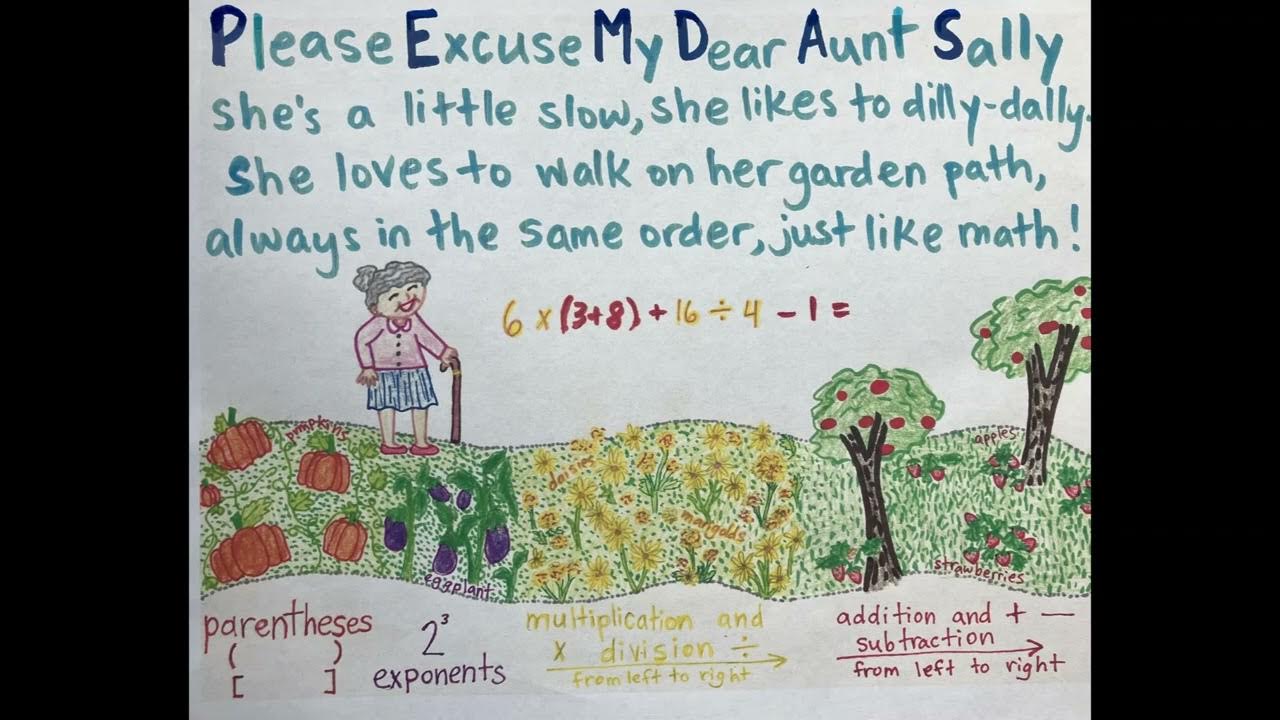 Please Excuse My Dear Aunt Sally
she's a little slow, she likes to dilly-dally.
She loves to walk on her garden path,
always in the same order, just like math!
6 × (3+8) + 16 ÷ 4 - 1 =
pumpkins
apples
daisies
marigolds
eggplant
strawberries
parentheses
( )
[ ]
2³
exponents
multiplication and
× division ÷
from left to right
addition and + —
subtraction
from left to right